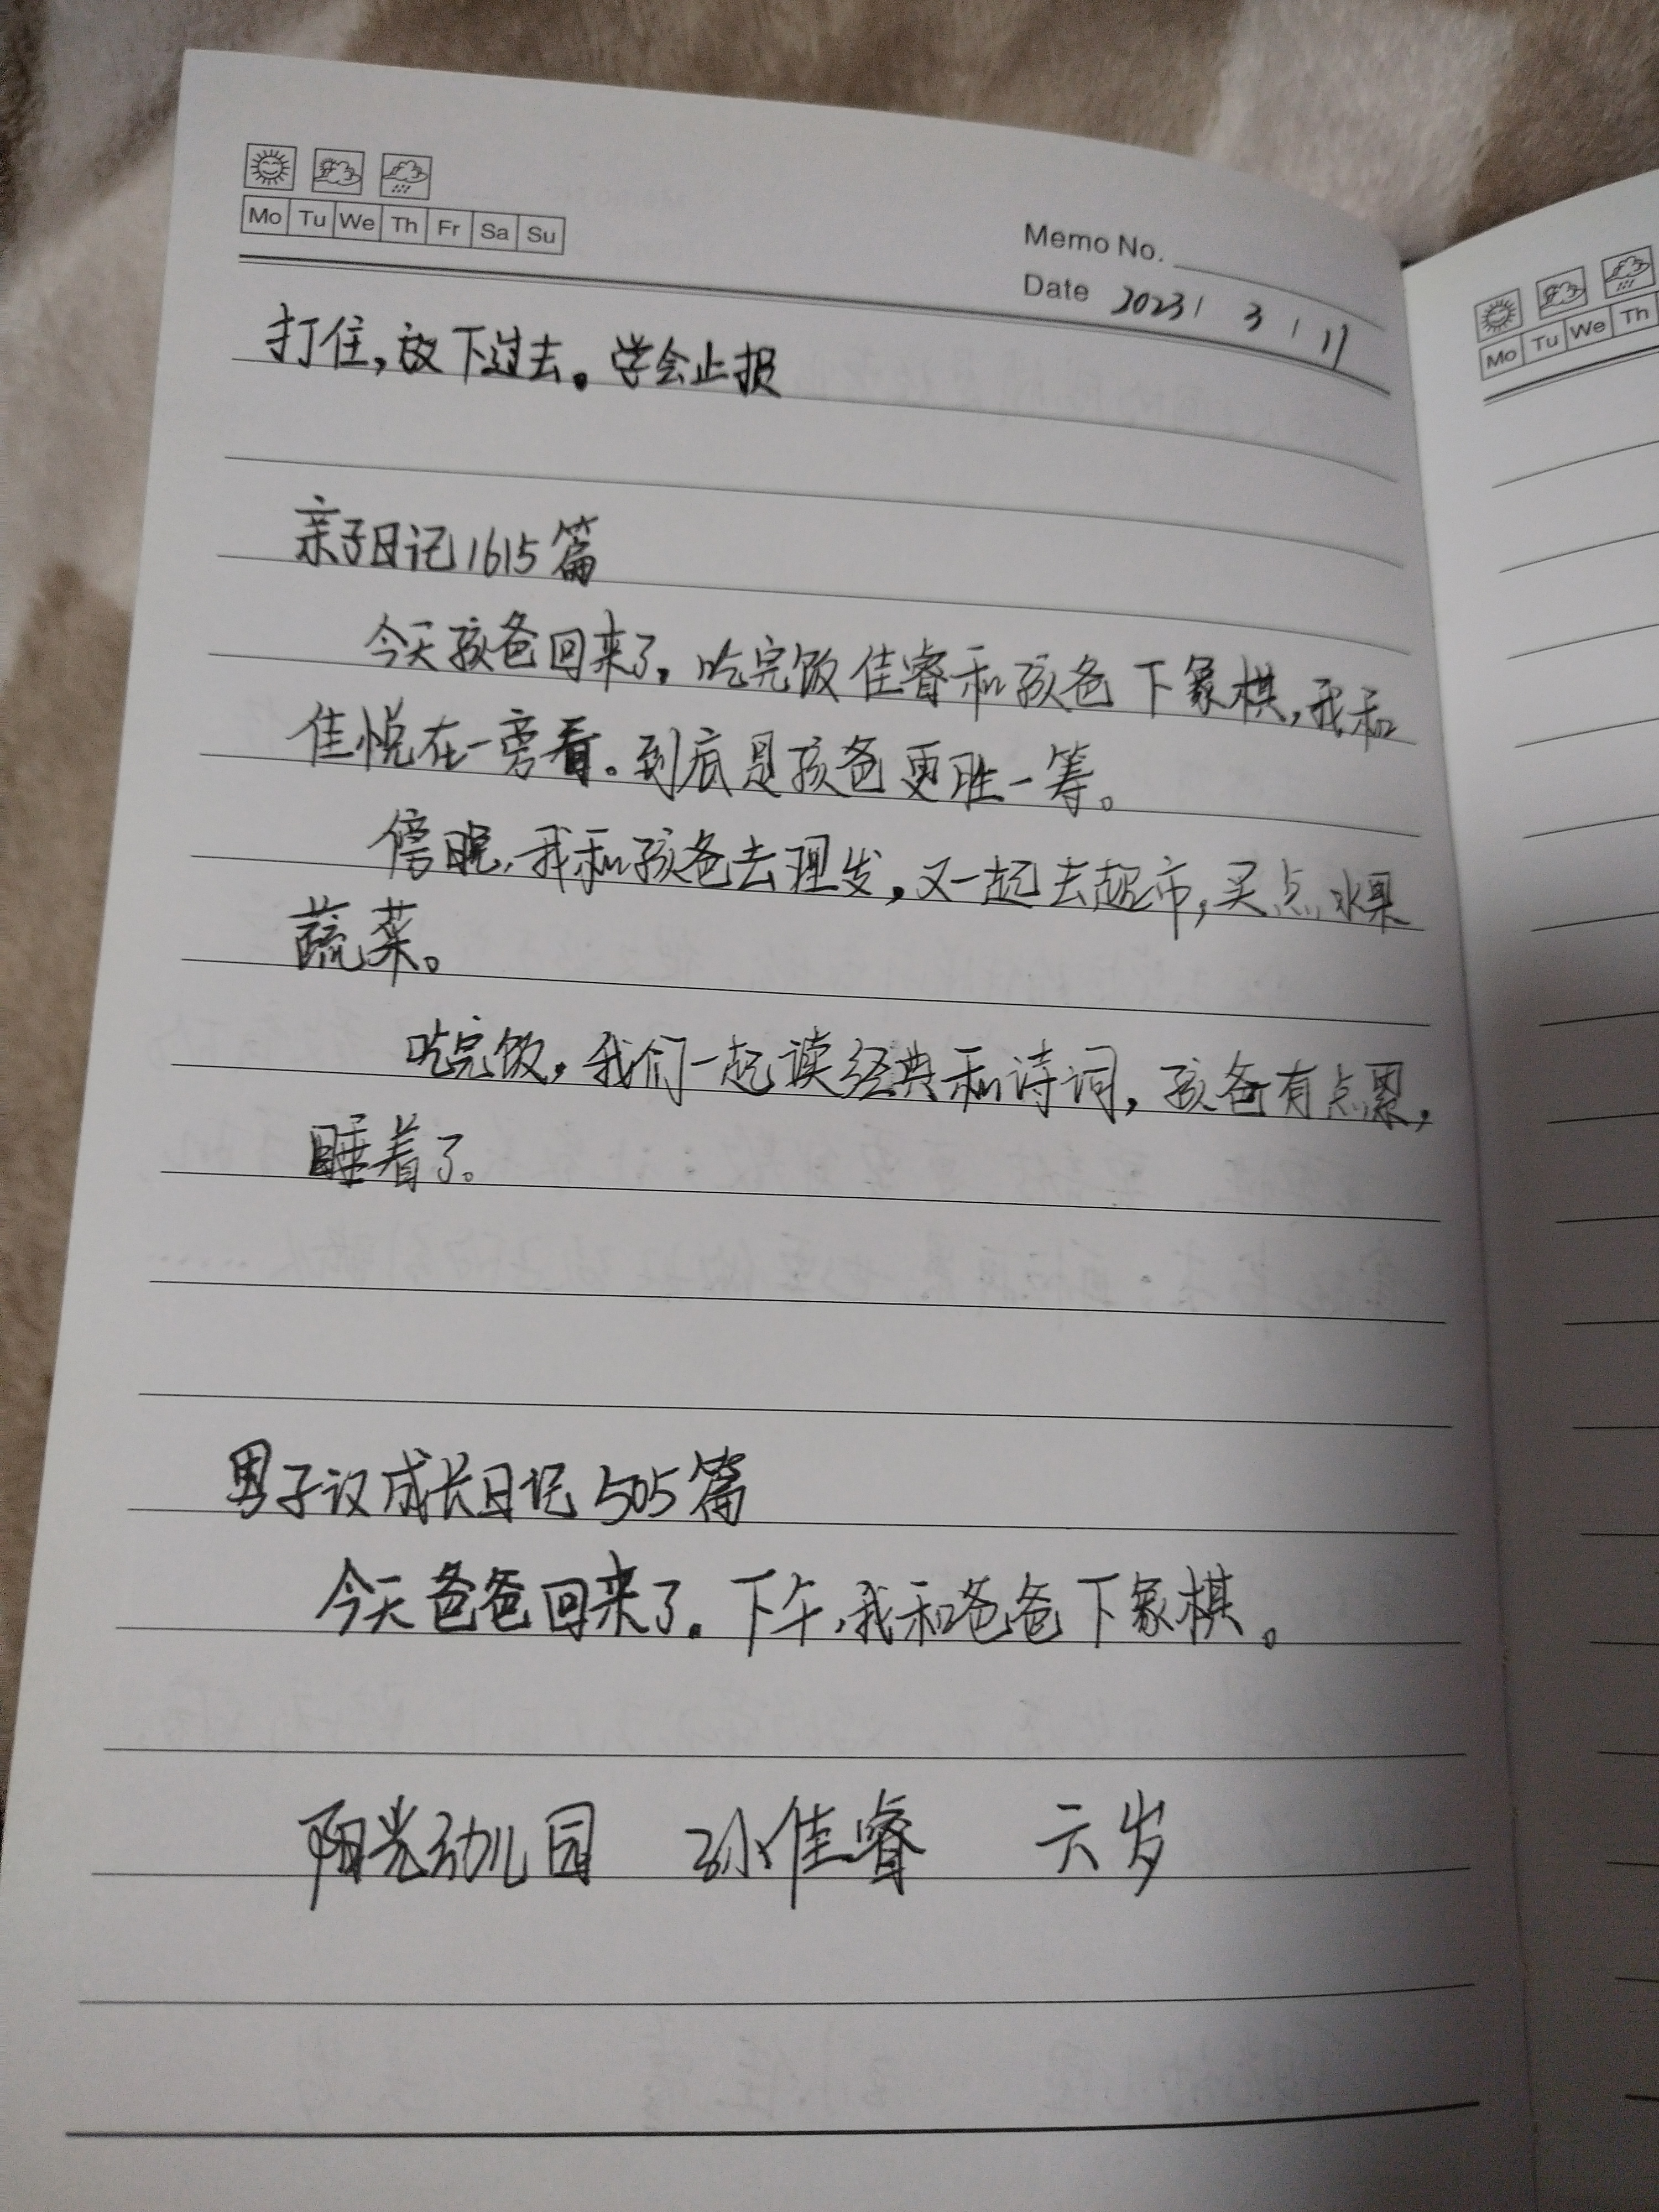 Mo Tu We Th Fr Sa Su
Memo No.
Date 2023 / 3 / 17
打住,放下过去。学会止损
亲子日记1615篇
今天孩爸回来了,吃完饭佳睿和孩爸下象棋,我和
佳悦在一旁看。到底是孩爸更胜一筹。
傍晚,我和孩爸去理发,又一起去超市,买点水果
蔬菜。
吃完饭,我们一起读经典和诗词,孩爸有点累,
睡着了。
男子汉成长日记505篇
今天爸爸回来了。下午,我和爸爸下象棋。
阳光幼儿园 孙佳睿 六岁
Mo Tu We Th